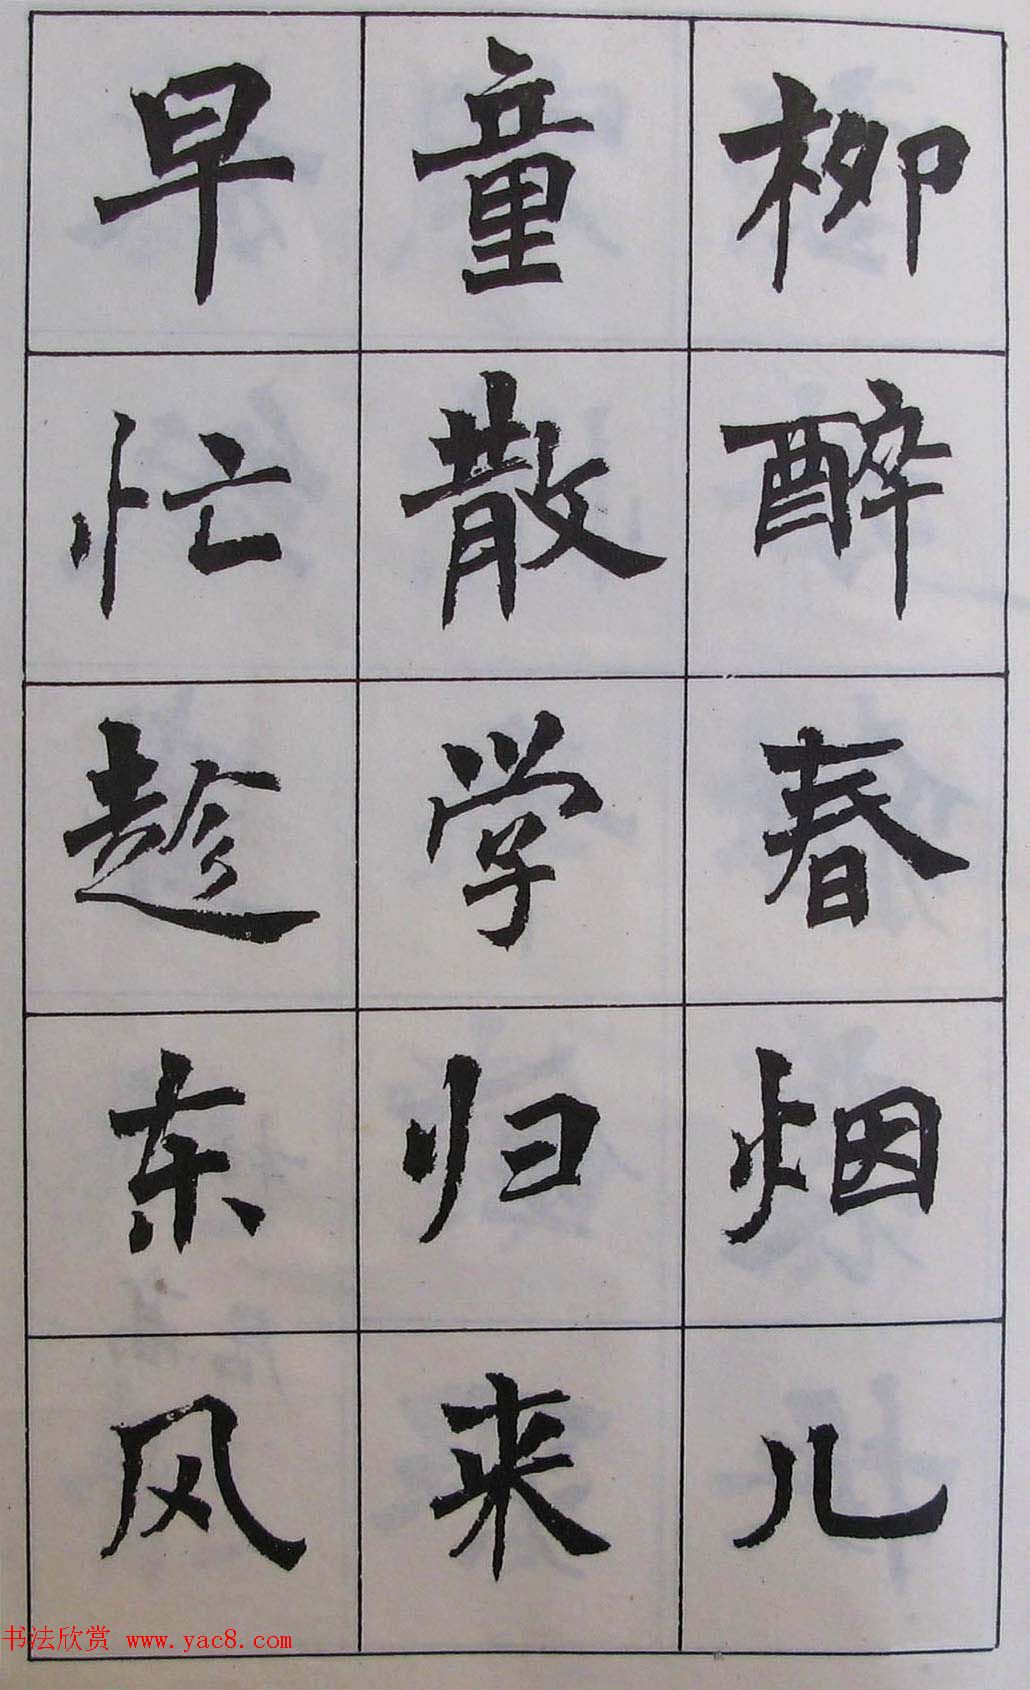 柳醉春烟儿
童散学归来
早忙趁东风
书法欣赏 www.yac8.com